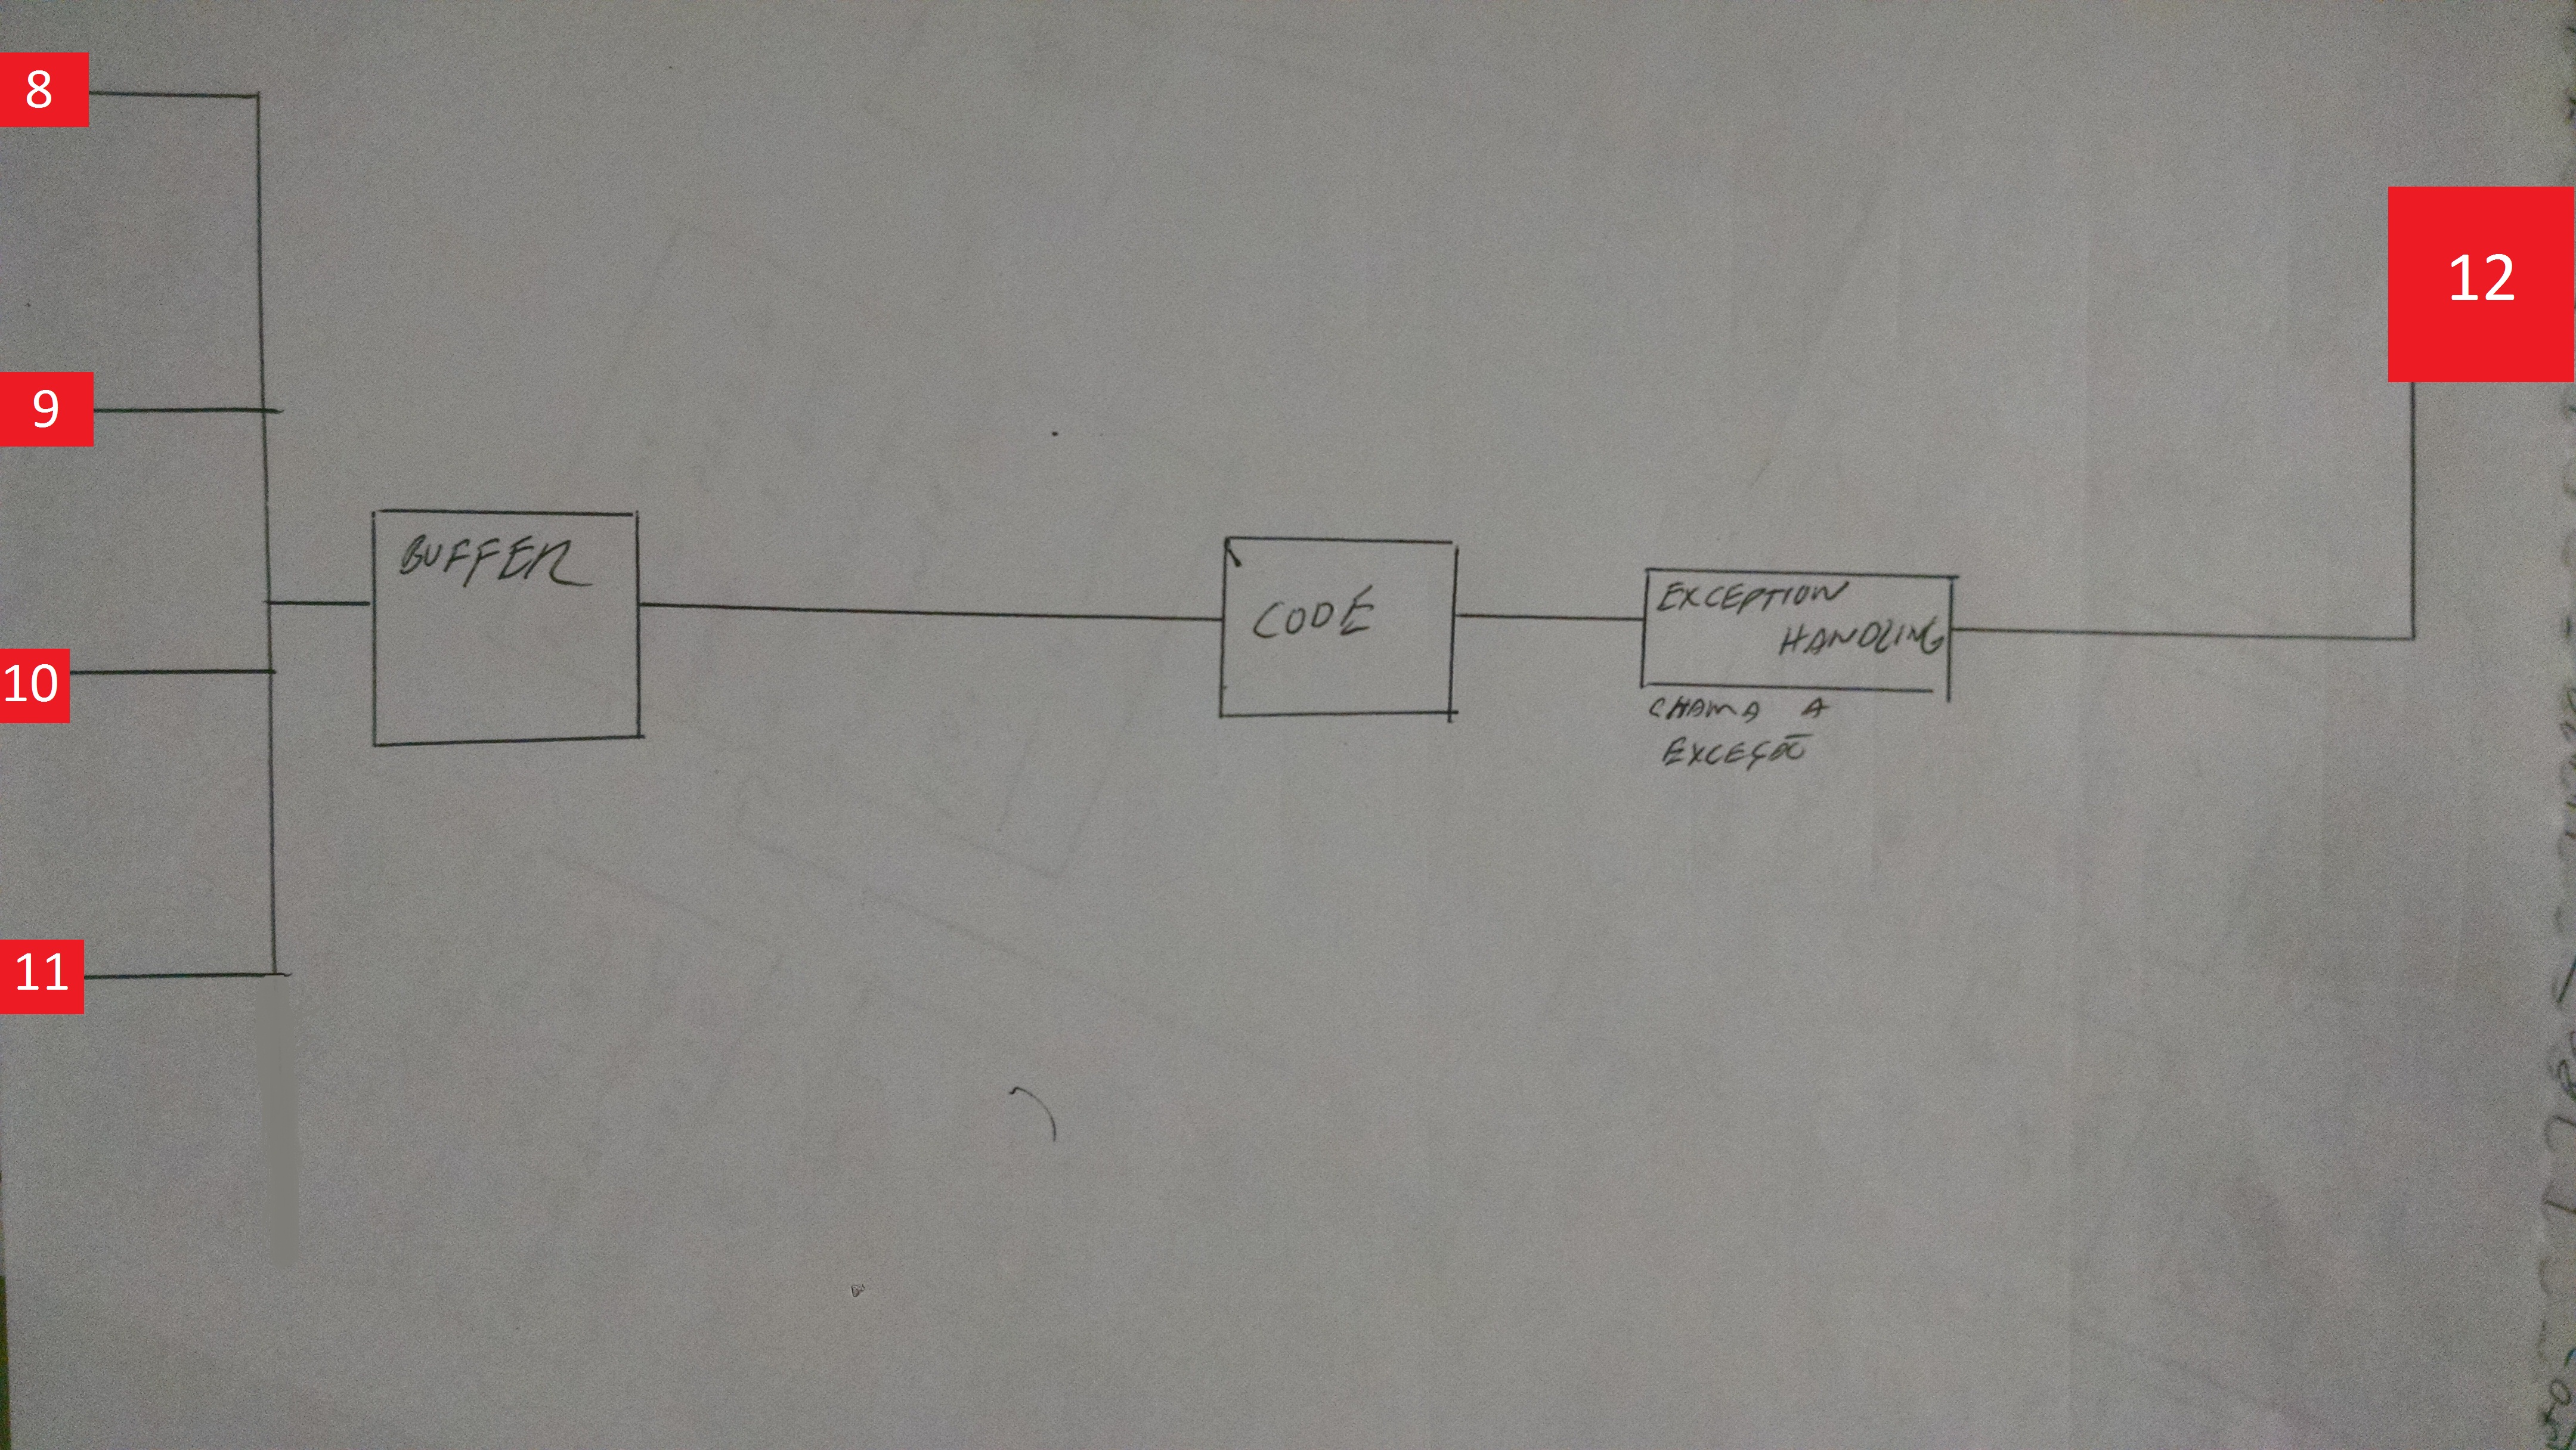 8
12
9
BUFFER
CODE
EXCEPTION
HANDLING
10
CHAMA A
EXCEÇÃO
11